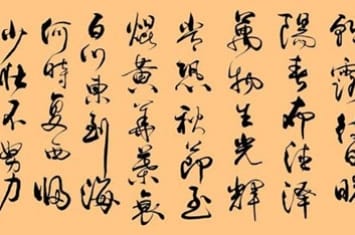 朝露待日晞
陽春布德澤
萬物生光輝
常恐秋節至
焜黃華葉衰
百川東到海
何時复西歸
少壯不努力